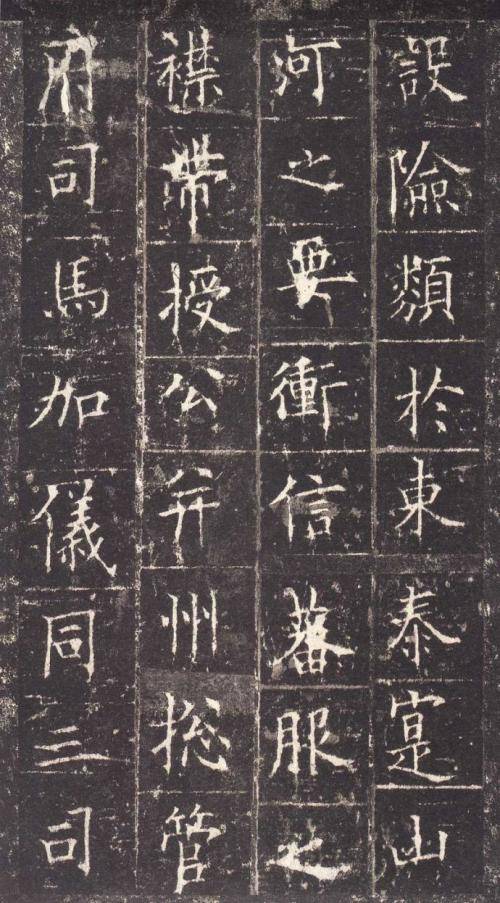 設險類於東秦寔山
河之要衝信蕃服之
襟帶授公并州揔管
府司馬加儀同三司